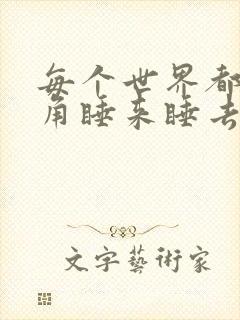 每个世界都
角睡来睡去
文字藝術家